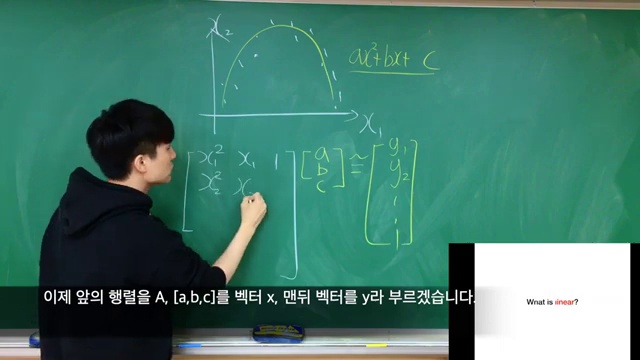 x₂
ax²+bx+ c
x₁
x₁² x₁ 1 a ≈ y₁
x₂² x b y₂
c
이제 앞의 행렬을 A, [a,b,c]를 벡터 x, 맨뒤 벡터를 y라 부르겠습니다.
What is linear?